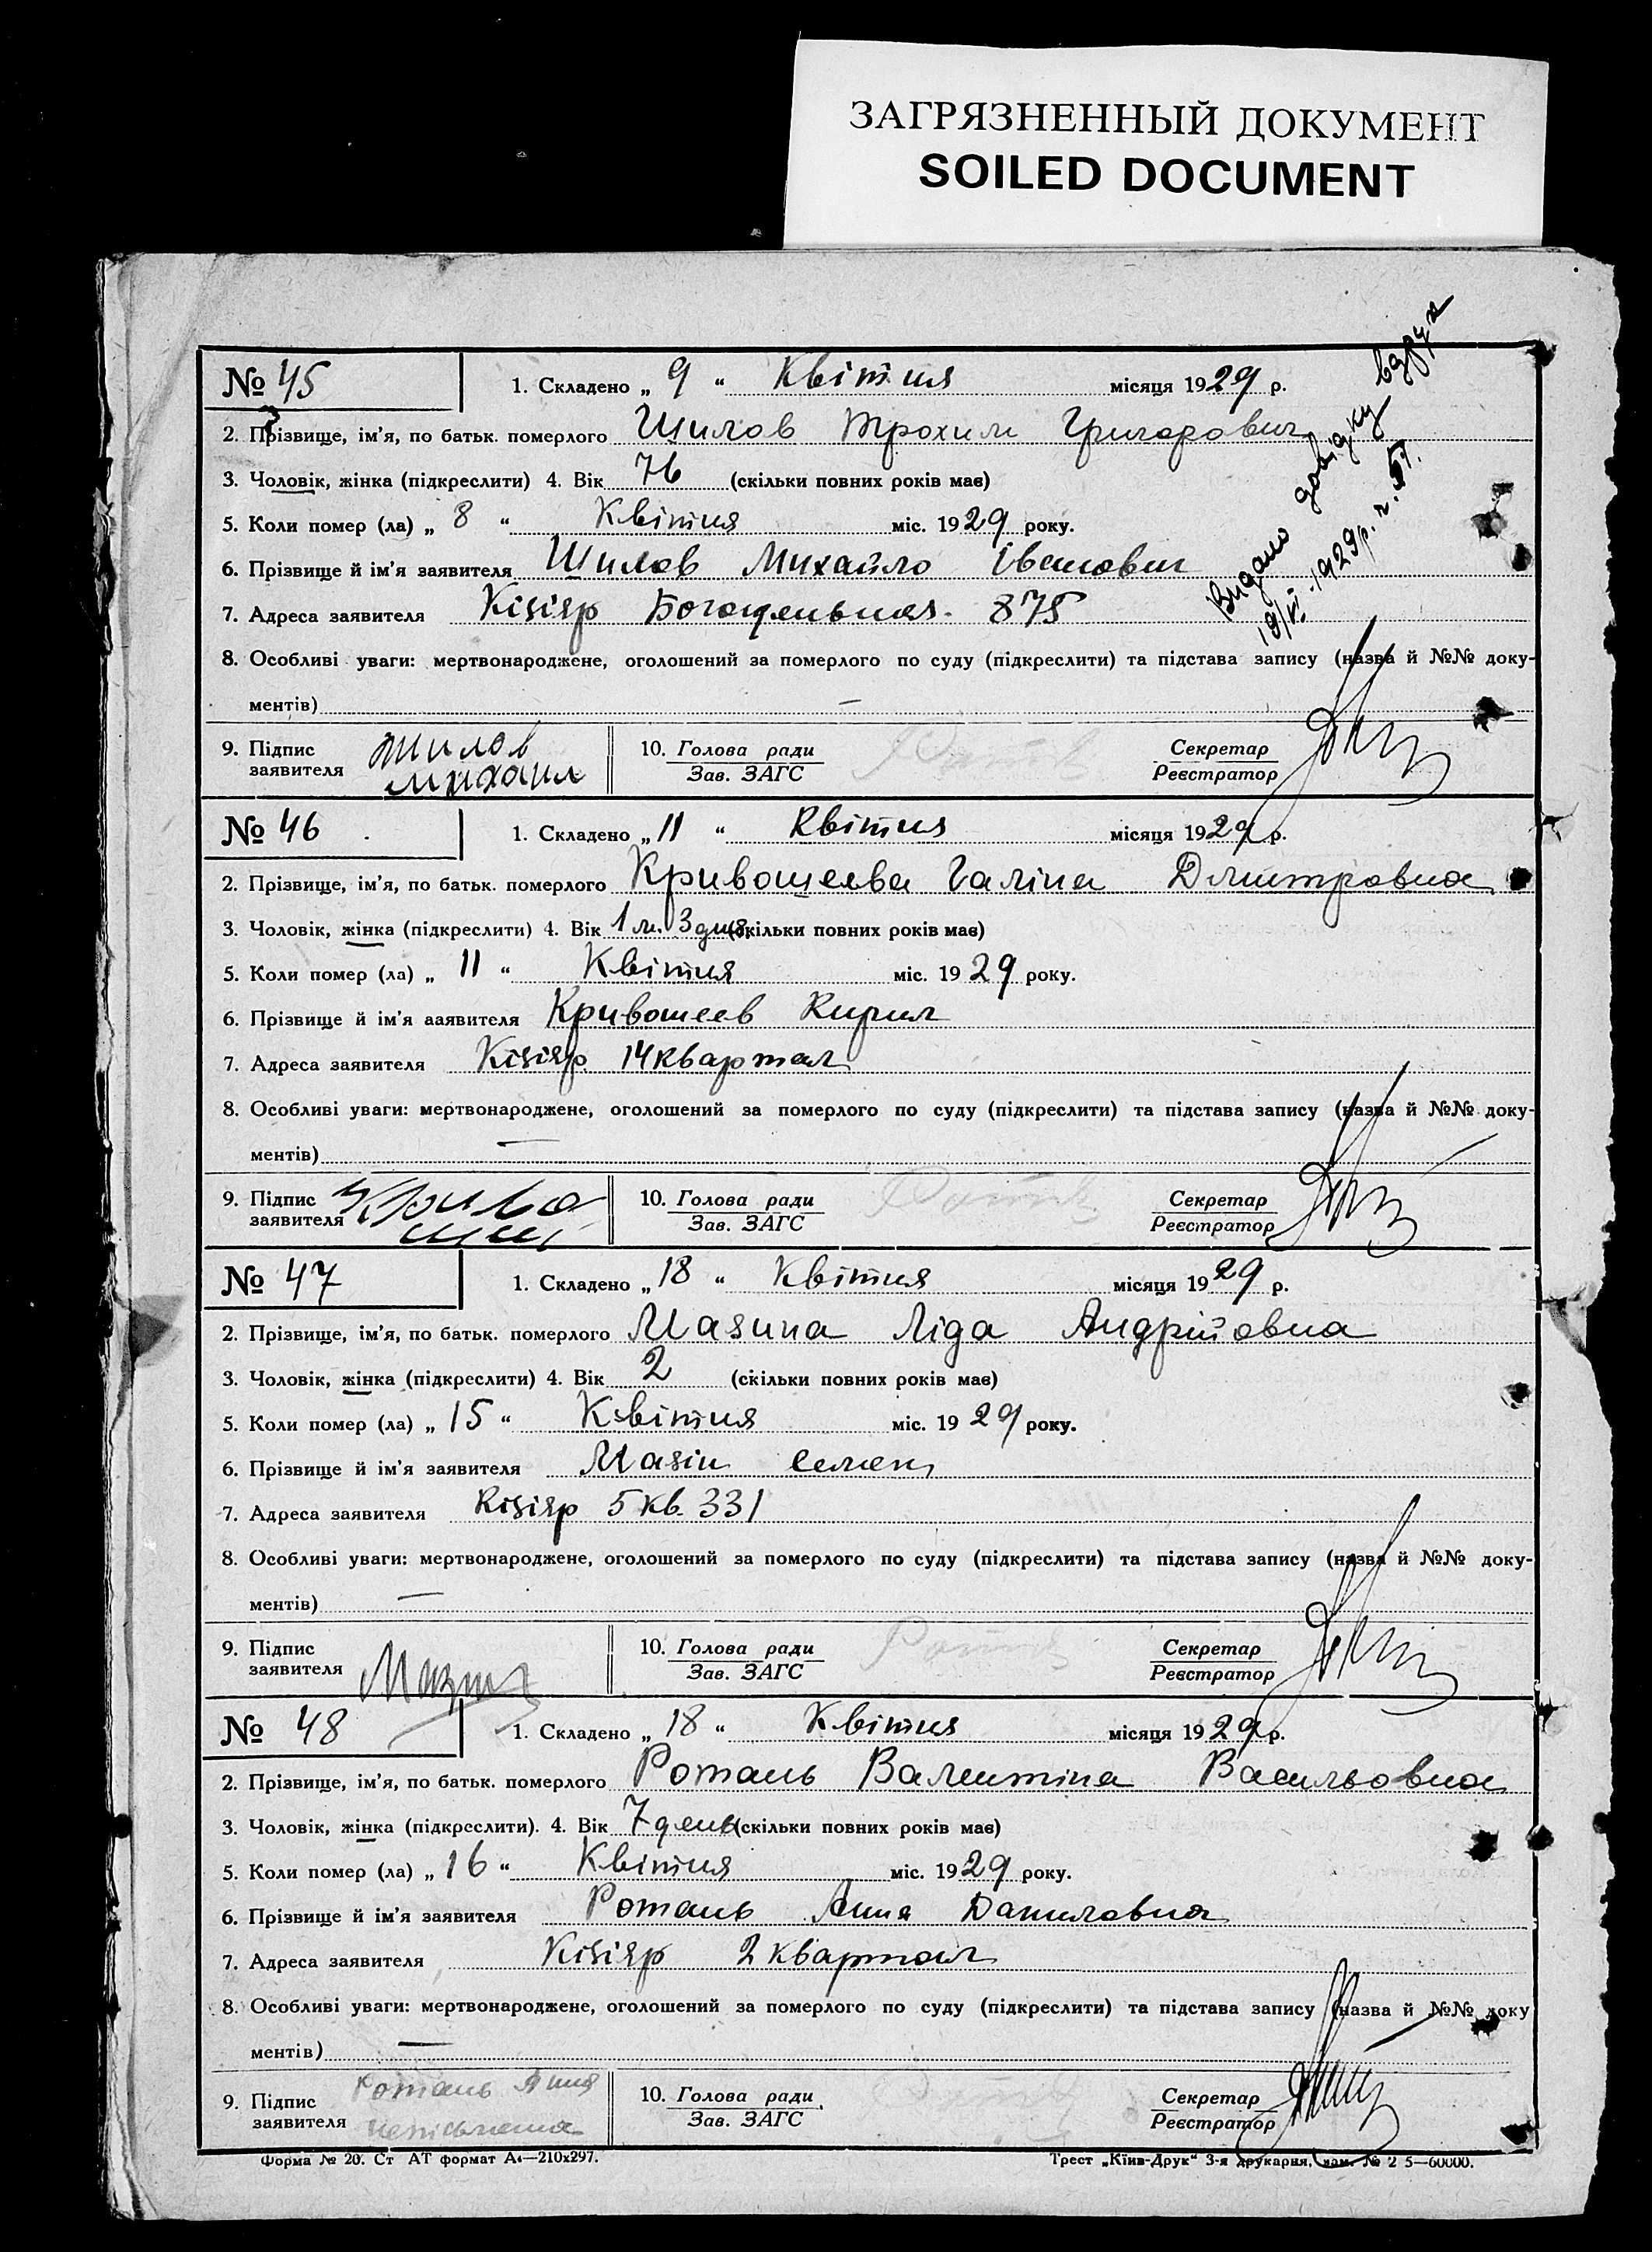 ЗАГРЯЗНЕННЫЙ ДОКУМЕНТ
SOILED DOCUMENT
№ 45 1. Складено „ 9 “ Квітня місяця 1929 р.
2. Прізвище, ім'я, по батьк. померлого Шилов Трохим Григорович
3. Чоловік, жінка (підкреслити) 4. Вік 76 (скільки повних років має)
5. Коли помер (ла) „ 8 “ Квітня міс. 1929 року.
6. Прізвище й ім'я заявителя Шилов Михайло Іванович
7. Адреса заявителя Кізіяр 875
Видано довідку
19/VI. 1929р.
8. Особливі уваги: мертвонароджене, оголошений за померлого по суду (підкреслити) та підстава запису (назва й №№ доку-
ментів) —
9. Підпис заявителя Шилов Михаил 10. Голова ради Зав. ЗАГС Секретар Реєстратор
№ 46 1. Складено „ 11 “ Квітня місяця 1929 р.
2. Прізвище, ім'я, по батьк. померлого Кривошеева Галіна Дмитровна
3. Чоловік, жінка (підкреслити) 4. Вік 1 м. 3 дня (скільки повних років має)
5. Коли помер (ла) „ 11 “ Квітня міс. 1929 року.
6. Прізвище й ім'я ааявителя Кривошеев Кирил
7. Адреса заявителя Кізіяр 14 квартал
8. Особливі уваги: мертвонароджене, оголошений за померлого по суду (підкреслити) та підстава запису (назва й №№ доку-
ментів) —
9. Підпис заявителя 10. Голова ради Зав. ЗАГС Секретар Реєстратор
№ 47 1. Складено „ 18 “ Квітня місяця 1929 р.
2. Прізвище, ім'я, по батьк. померлого Мазина Ліда Андрійовна
3. Чоловік, жінка (підкреслити) 4. Вік 2 (скільки повних років має)
5. Коли помер (ла) „ 15 “ Квітня міс. 1929 року.
6. Прізвище й ім'я заявителя Мазін Семен
7. Адреса заявителя Кізіяр 5 кв. 331
8. Особливі уваги: мертвонароджене, оголошений за померлого по суду (підкреслити) та підстава запису (назва й №№ доку-
ментів) —
9. Підпис заявителя Мазин 10. Голова ради Зав. ЗАГС Секретар Реєстратор
№ 48 1. Складено „ 18 “ Квітня місяця 1929 р.
2. Прізвище, ім'я, по батьк. померлого Ротань Валентіна Васильовна
3. Чоловік, жінка (підкреслити). 4. Вік 7 день (скільки повних років має)
5. Коли помер (ла) „ 16 “ Квітня міс. 1929 року.
6. Прізвище й ім'я заявителя Ротань Анна Даниловна
7. Адреса заявителя Кізіяр 2 квартал
8. Особливі уваги: мертвонароджене, оголошений за померлого по суду (підкреслити) та підстава запису (назва й №№ доку
ментів) —
9. Підпис заявителя Ротань Анна неписьмена 10. Голова ради Зав. ЗАГС Секретар Реєстратор
Форма № 20. Ст АТ формат А4—210х297. Трест „Київ-Друк“ 3-я друкарня, зам. № 2 5—60000.